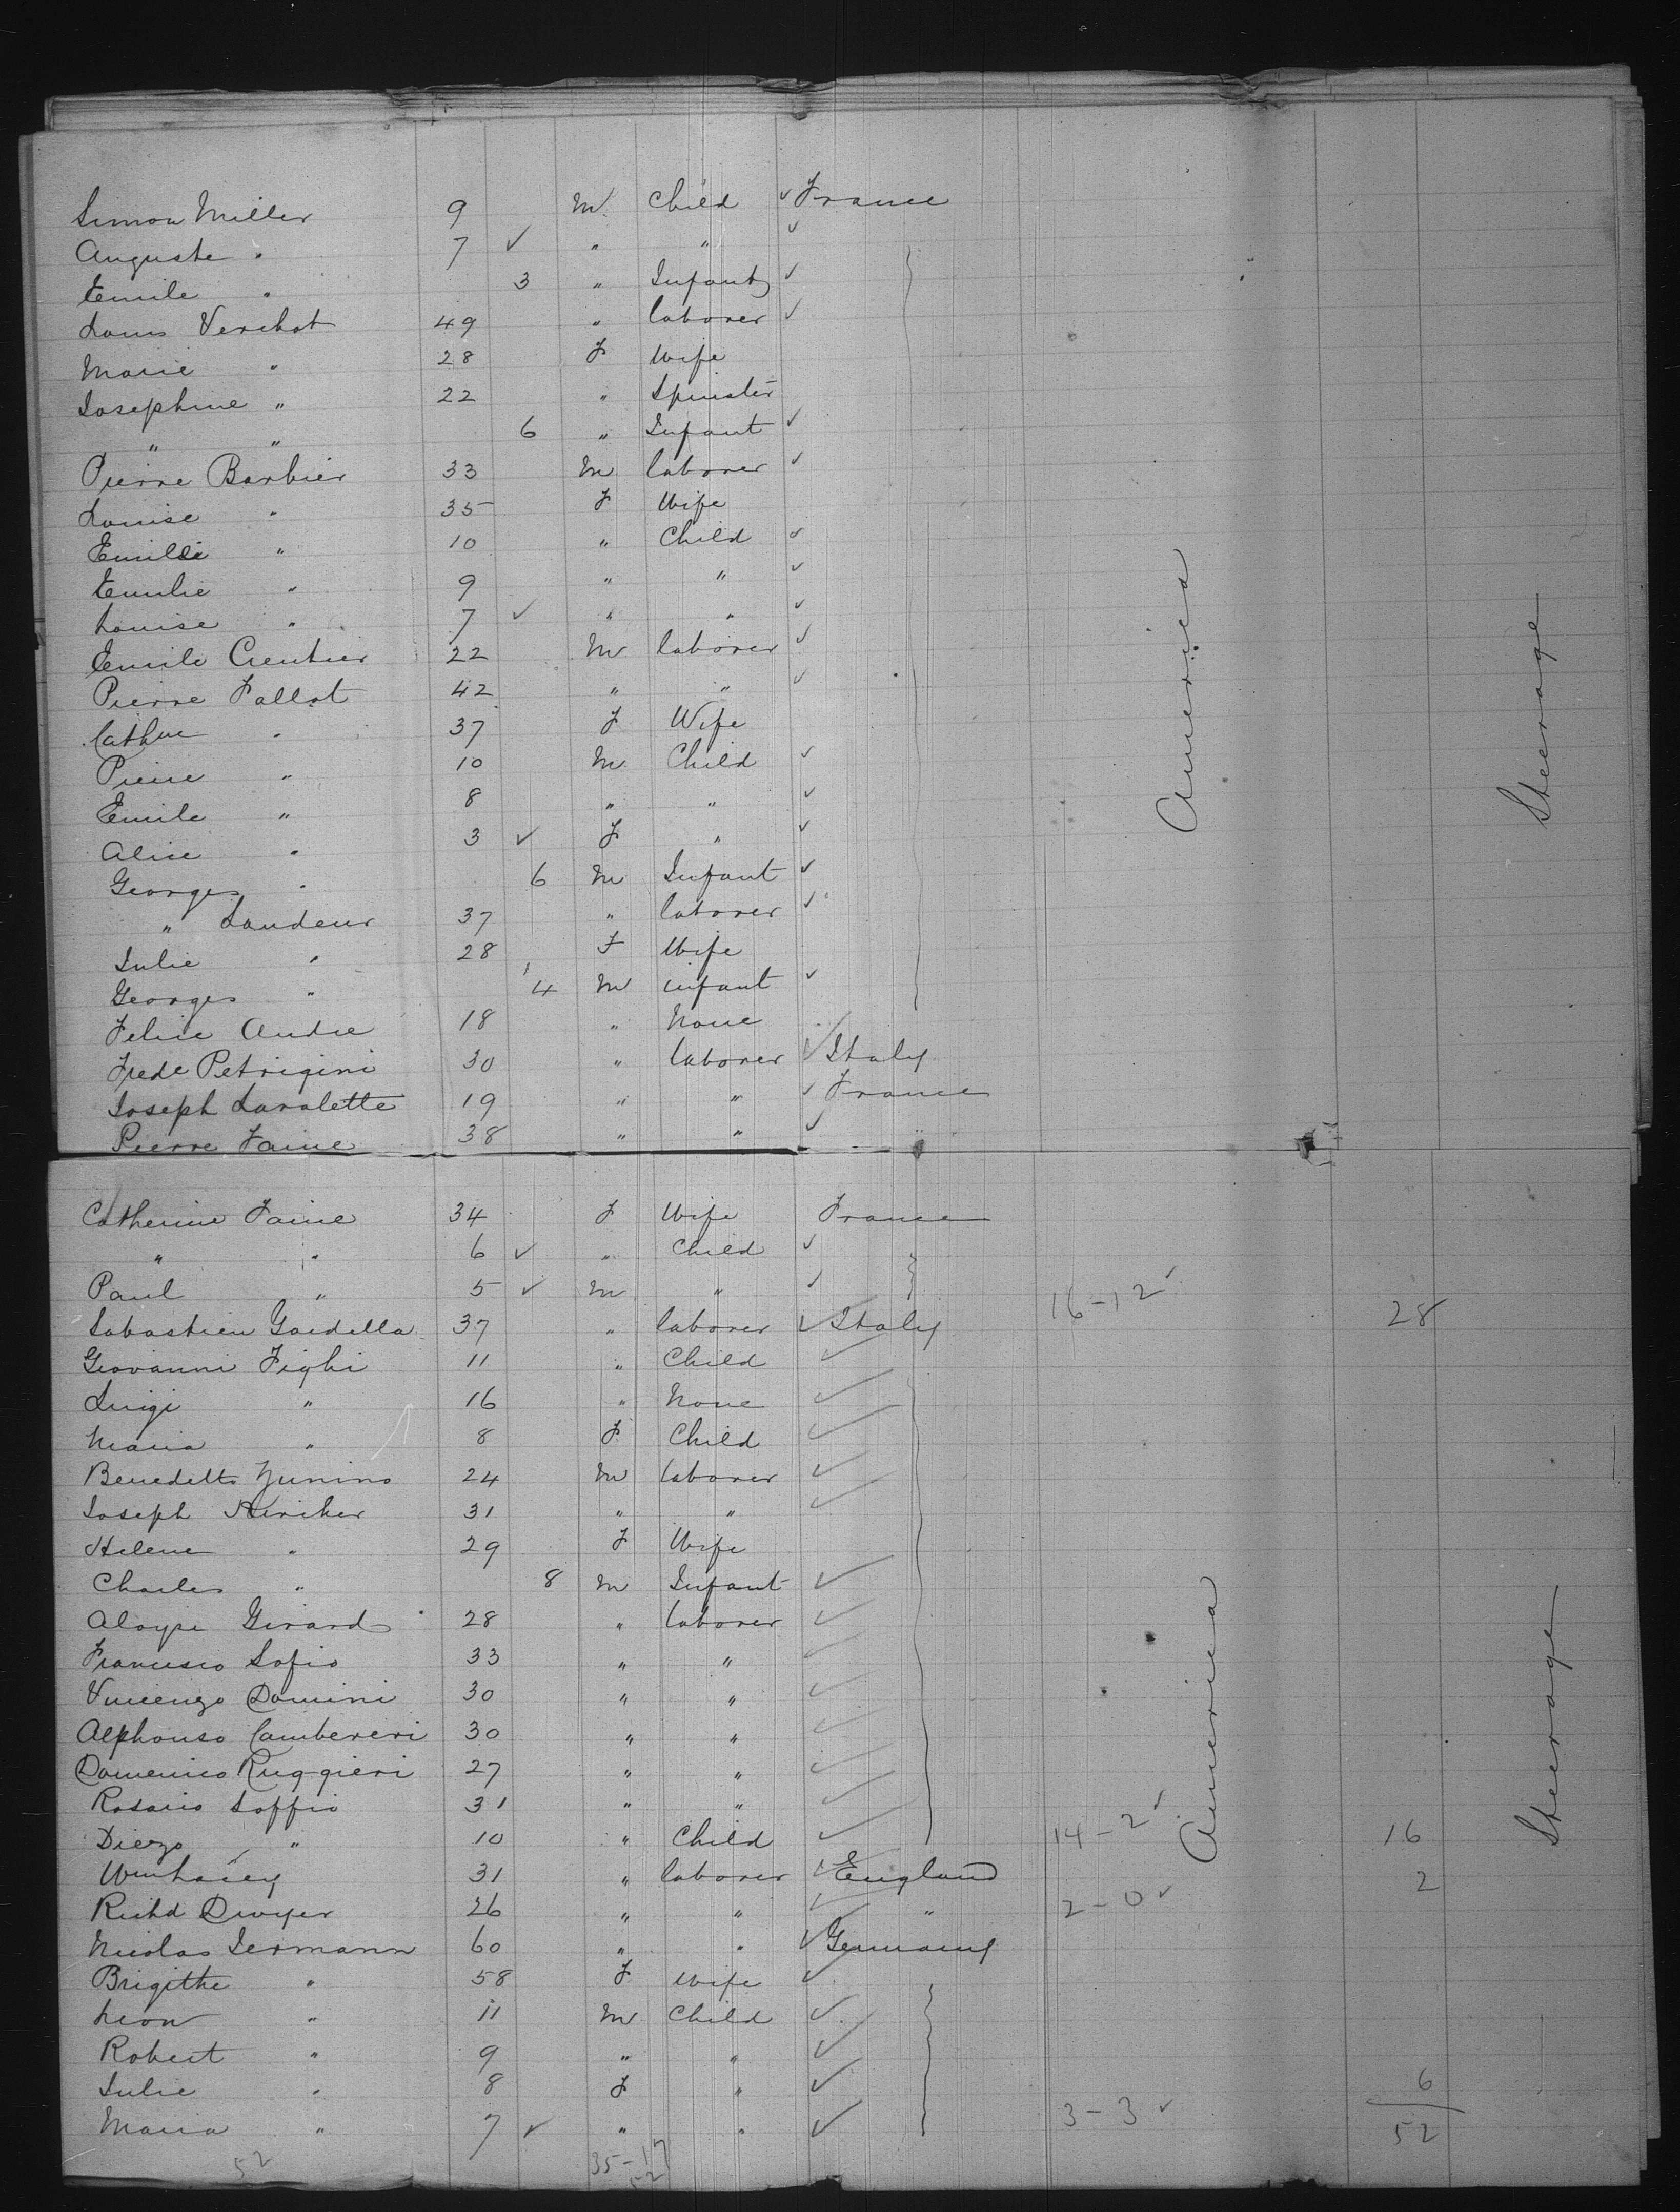 Simon Miller 9 M Child ✓ France
Auguste " 7 ✓ " " ✓
Emile " 3 " Infant ✓
Louis Verchot 49 " laborer ✓
Marie " 28 F Wife
Josephine " 22 " Spinster
" " 6 " Infant ✓
Pierre Barbier 33 M laborer ✓
Louise " 35 F Wife
Emilie " 10 " Child ✓
Emilie " 9 " " ✓
Louise " 7 ✓ " " ✓
Emile 22 M laborer ✓
Pierre Fallot 42 " " ✓
Cathne " 37 F Wife
Pierre " 10 M Child ✓
Emile " 8 " " ✓
Alice " 3 ✓ F " ✓
Georges " 6 M Infant ✓
" Laudeur 37 " laborer ✓
Julie " 28 F Wife
Georges " 4 M infant ✓
Felice Andre 18 " None
Frede Petrigini 30 " laborer ✓ Italy
Joseph Lavalette 19 " " ✓ France
Pierre Faine 38 " " ✓
America
Steerage
Catherine Faine 34 F Wife France
" " 6 ✓ " Child ✓
Paul " 5 ✓ M " ✓ 16-12 ✓ 28
Sabastien Gardella 37 " laborer ✓ Italy
Giovanni Fighi 11 " Child ✓
Luigi " 16 " None ✓
Maria " 8 F Child ✓
Benedetto Zunino 24 M laborer ✓
Joseph 31 " " ✓
Helene " 29 F Wife
Charles " 8 M Infant ✓
Aloyse Girard 28 " laborer ✓
Francisco Sofio 33 " " ✓
Vincenzo Domini 30 " " ✓
Alphonso Cambereri 30 " " ✓
Domenico Ruggieri 27 " " ✓
Rosario Soffio 31 " " ✓
Diego " 10 " Child ✓ 14-2 ✓ 16
Wm 31 " laborer ✓ England 2
Richd Dwyer 26 " " ✓ " 2-0 ✓
Nicolas Jermann 60 " " ✓ Germany
Brigithe " 58 F Wife ✓
Leon " 11 M Child ✓
Robert " 9 " " ✓
Julie " 8 F " ✓ 6
Maria " 7 ✓ " " ✓ 3-3 ✓ 52
52 35-17
52
America
Steerage